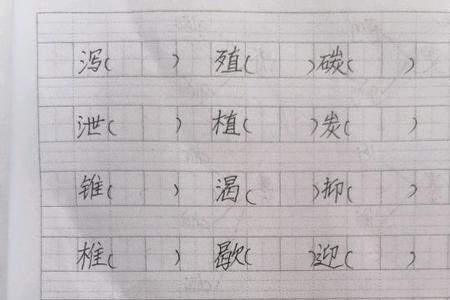 泻( ) 殖( )碳( )
泄( ) 植( )炭( )
锥( ) 渴( )抑( )
椎( ) 歇( )迎( )